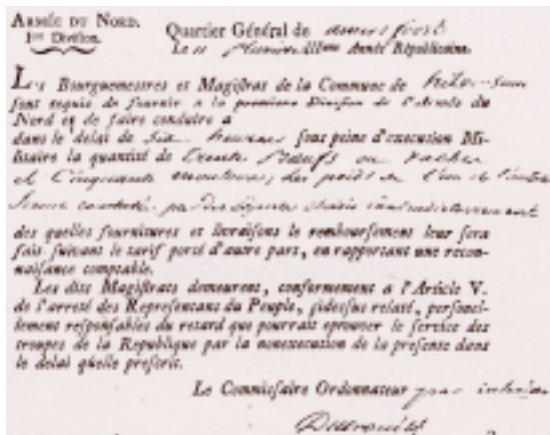 ARMÉE DU NORD.
1ere Division.
Quartier Général de amersfoort
Le 11 Pluviose IIIme Année Républicaine.
Les Bourguemestres et Magistrats de la Commune de
sont requis de fournir a la premiere Division de l'Armée du
Nord et de faire conduire a
dans le delai de Six heures sous peine d'execution Mi-
litaire la quantité de Trente Bœufs ou vaches
et Cinquante moutons, du poids de l'un et l'autre
des quelles fournitures et livraisons le remboursement leur sera
fais suivant le tarif porté d'autre part, en rapportant une recon-
naissance comptable.
Les dits Magistrats demeurent, conformement a l'Article V.
de l'arresté des Representans du Peuple, cidessus relaté, personel-
lement responsables du retard que pourrait eprouver le service des
troupes de la Republique par la nonexecution de la presente dans
le delai qu'elle prescrit.
Le Commissaire Ordonnateur par interim